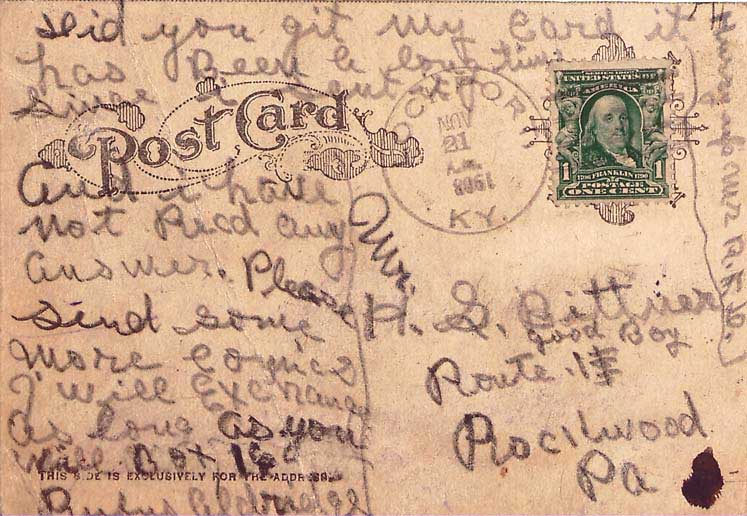 Did you git my Card it
has Been a long time
since I sent it
Post Card
And i have
not Recd any
answer. Please
send some
more comics
I will Exchang
as long as you
will. Box 16
THIS SIDE IS EXCLUSIVELY FOR THE ADDRESS.
Rufus Aldredge
OCTOR
NOV
21
A.M.
KY.
SERIES 1902
UNITED STATES OF
AMERICA
1706 FRANKLIN 1790
POSTAGE
1 ONE CENT 1
Mr.
H. G. Bittner
good Boy
Route. 1
Rockwood
Pa